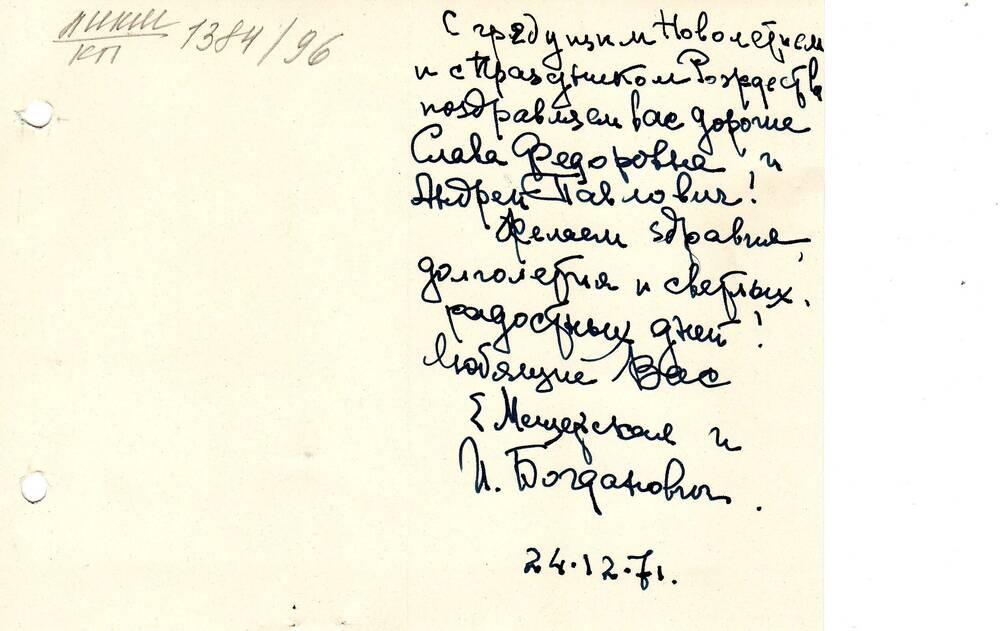 ЛИКМ
КП 1384/96
С грядущим Новолетием
и с Праздником Рождества
поздравляем вас дорогие
Слава Федоровна и
Андрей Павлович!
Желаем здравия,
долголетия и светлых,
радостных дней!
Любящие Вас
Е Мещерская и
И. Богданович.
24.12.71.